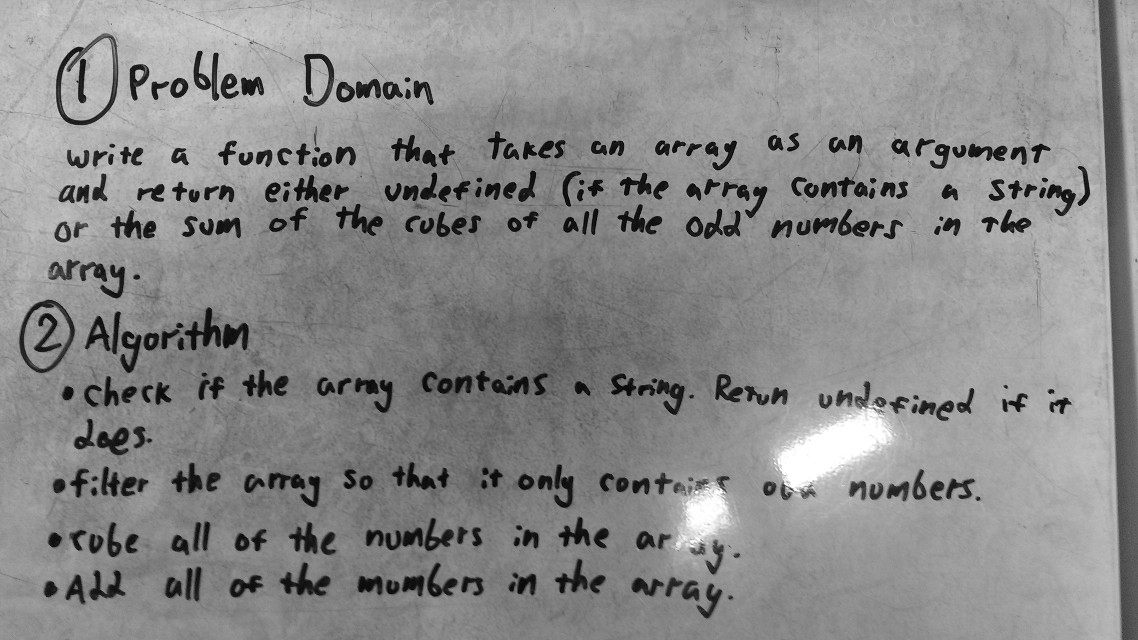 ① Problem Domain
write a function that takes an array as an argument
and return either undefined (if the array contains a string)
or the sum of the cubes of all the odd numbers in the
array.
② Algorithm
• check if the array contains a string. Retun undefined if it
does.
• filter the array so that it only contains odd numbers.
• cube all of the numbers in the array.
• Add all of the mumbers in the array.